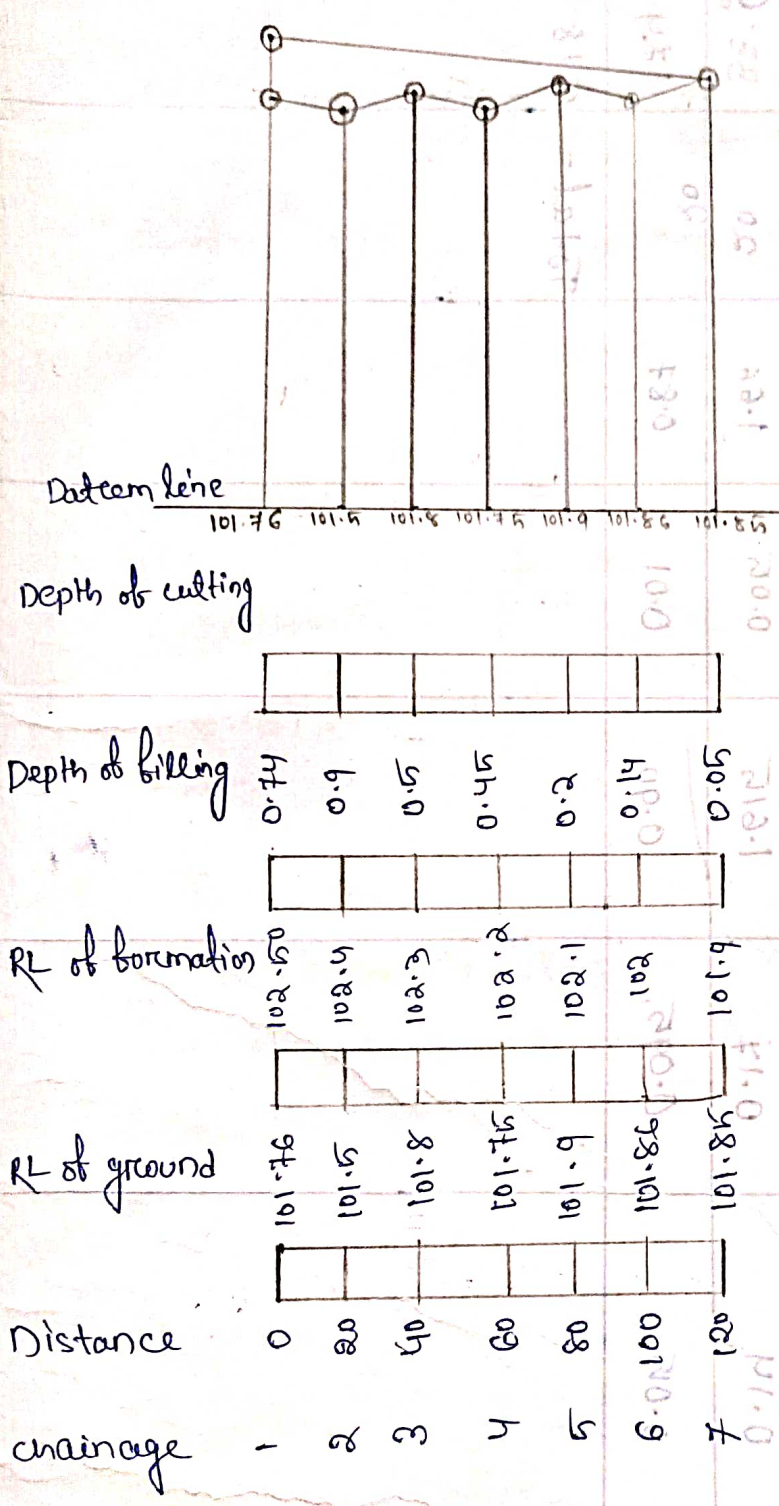 Datum line
101.76 101.5 101.8 101.75 101.9 101.86 101.85
Depth of cutting
Depth of filling 0.74 0.9 0.5 0.45 0.2 0.14 0.05
RL of formation 102.50 102.4 102.3 102.2 102.1 102 101.9
RL of ground 101.76 101.5 101.8 101.75 101.9 101.86 101.85
Distance 0 20 40 60 80 100 120
chainage 1 2 3 4 5 6 7